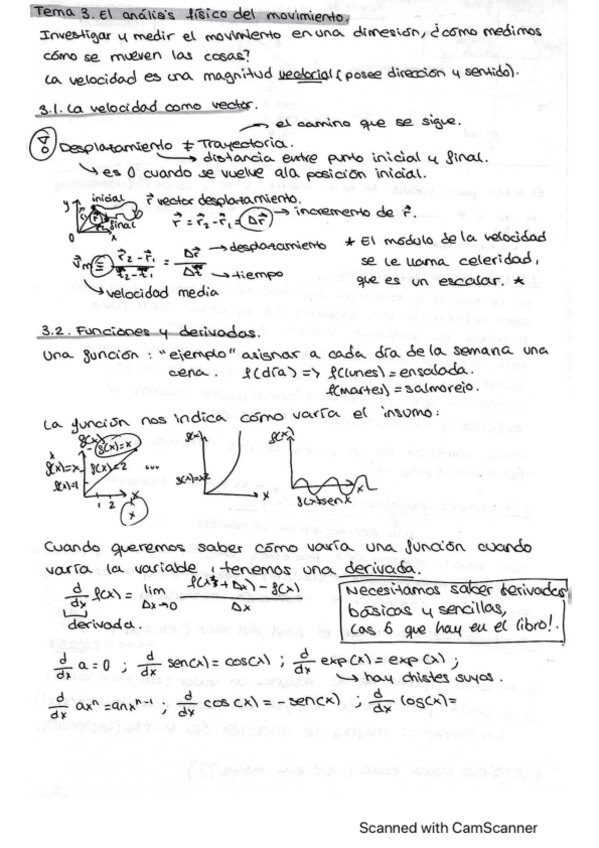 Tema 3. El análisis físico del movimiento.
Investigar y medir el movimiento en una dimesión, ¿cómo medimos
cómo se mueven las cosas?
La velocidad es una magnitud vectorial (posee dirección y sentido).
3.1. La velocidad como vector.
→ el camino que se sigue.
Desplazamiento ≠ Trayectoria.
→ distancia entre punto inicial y final.
↳ es 0 cuando se vuelve a la posición inicial.
y inicial r⃗ vector desplazamiento.
final r⃗ = r⃗₂ - r⃗₁ = Δr⃗ → incremento de r⃗.
0 x
v⃗m ≡ r⃗₂ - r⃗₁ / t₂ - t₁ = Δr⃗ / Δt → desplazamiento → tiempo
↳ velocidad media
* El módulo de la velocidad
se le llama celeridad,
que es un escalar. *
3.2. Funciones y derivadas.
Una función: "ejemplo" asignar a cada día de la semana una
cena. f(día) => f(lunes) = ensalada.
f(martes) = salmorejo.
La función nos indica cómo varía el insumo:
f(x) f(x)=x f(x) f(x)
f(x)=x f(x)=2 ...
f(x)=1 x x
1 2 f(x)=senx
x
Cuando queremos saber cómo varía una función cuando
varía la variable, tenemos una derivada.
d/dx f(x) = lim Δx→0 f(x+Δx) - f(x) / Δx
derivada.
Necesitamos saber derivadas
básicas y sencillas,
las 6 que hay en el libro!.
d/dx a = 0 ; d/dx sen(x) = cos(x) ; d/dx exp(x) = exp(x) ;
↳ hay chistes suyos.
d/dx axⁿ = anxⁿ⁻¹ ; d/dx cos(x) = - sen(x) ; d/dx log(x) =
Scanned with CamScanner